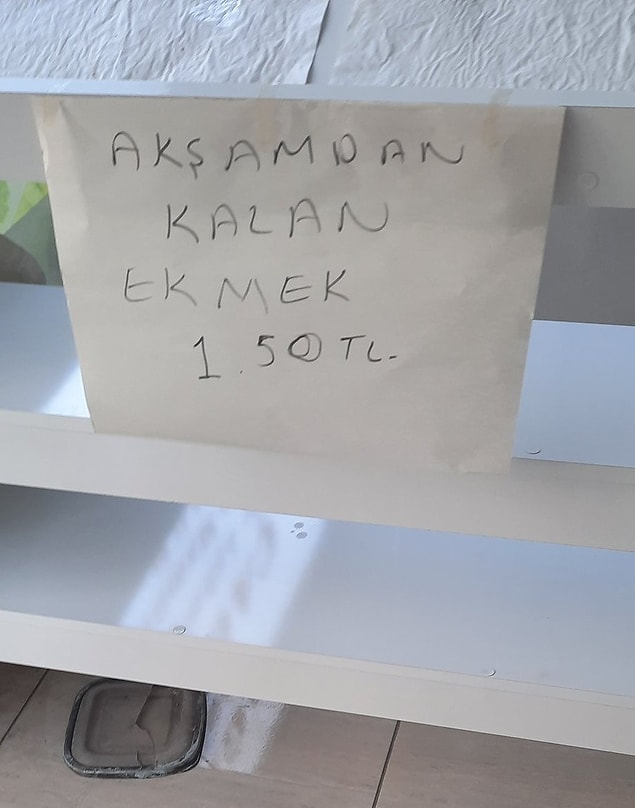 AKŞAMDAN
KALAN
EKMEK
1.50 TL.